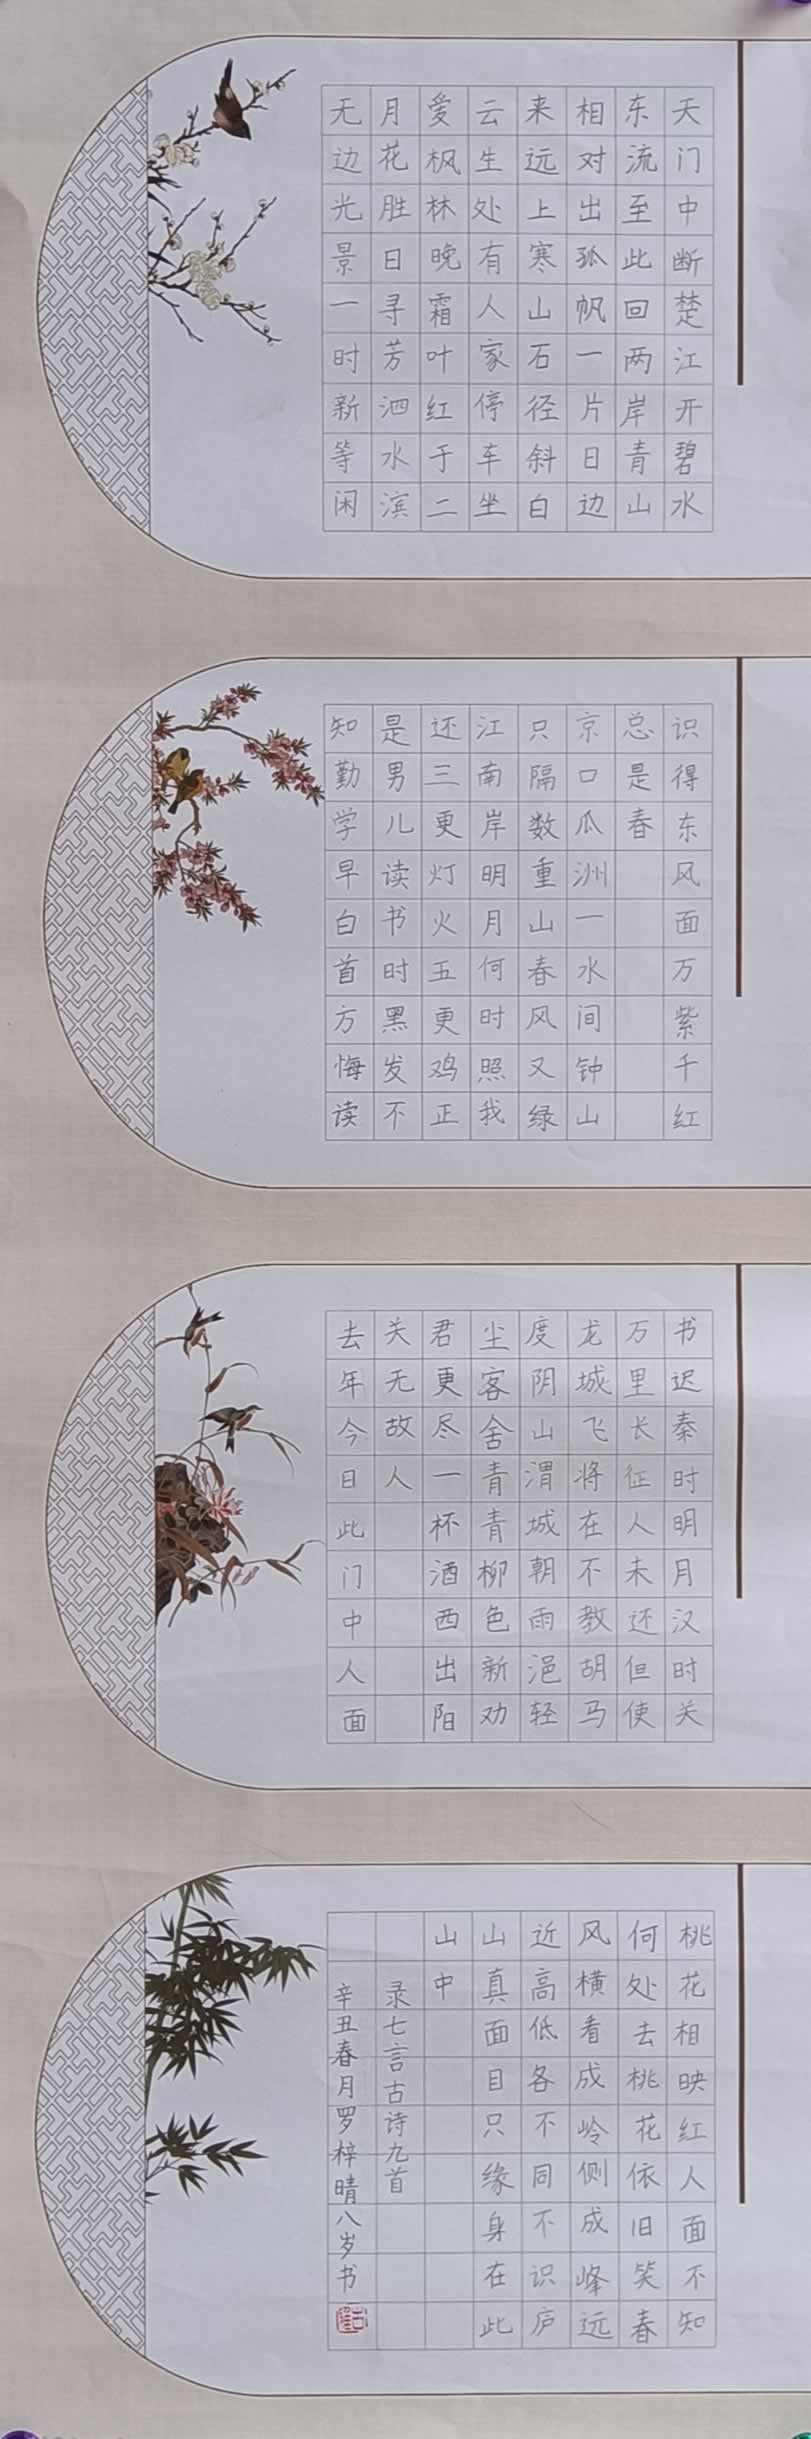 天门中断楚江开碧水
东流至此回两岸青山
相对出孤帆一片日边
来远上寒山石径斜白
云生处有人家停车坐
爱枫林晚霜叶红于二
月花胜日寻芳泗水滨
无边光景一时新等闲
识得东风面万紫千红
总是春
京口瓜洲一水间钟山
只隔数重山春风又绿
江南岸明月何时照我
还三更灯火五更鸡正
是男儿读书时黑发不
知勤学早白首方悔读
书迟秦时明月汉时关
万里长征人未还但使
龙城飞将在不教胡马
度阴山渭城朝雨浥轻
尘客舍青青柳色新劝
君更尽一杯酒西出阳
关无故人
去年今日此门中人面
桃花相映红人面不知
何处去桃花依旧笑春
风横看成岭侧成峰远
近高低各不同不识庐
山真面目只缘身在此
山中
录七言古诗九首
辛丑春月罗梓晴八岁书